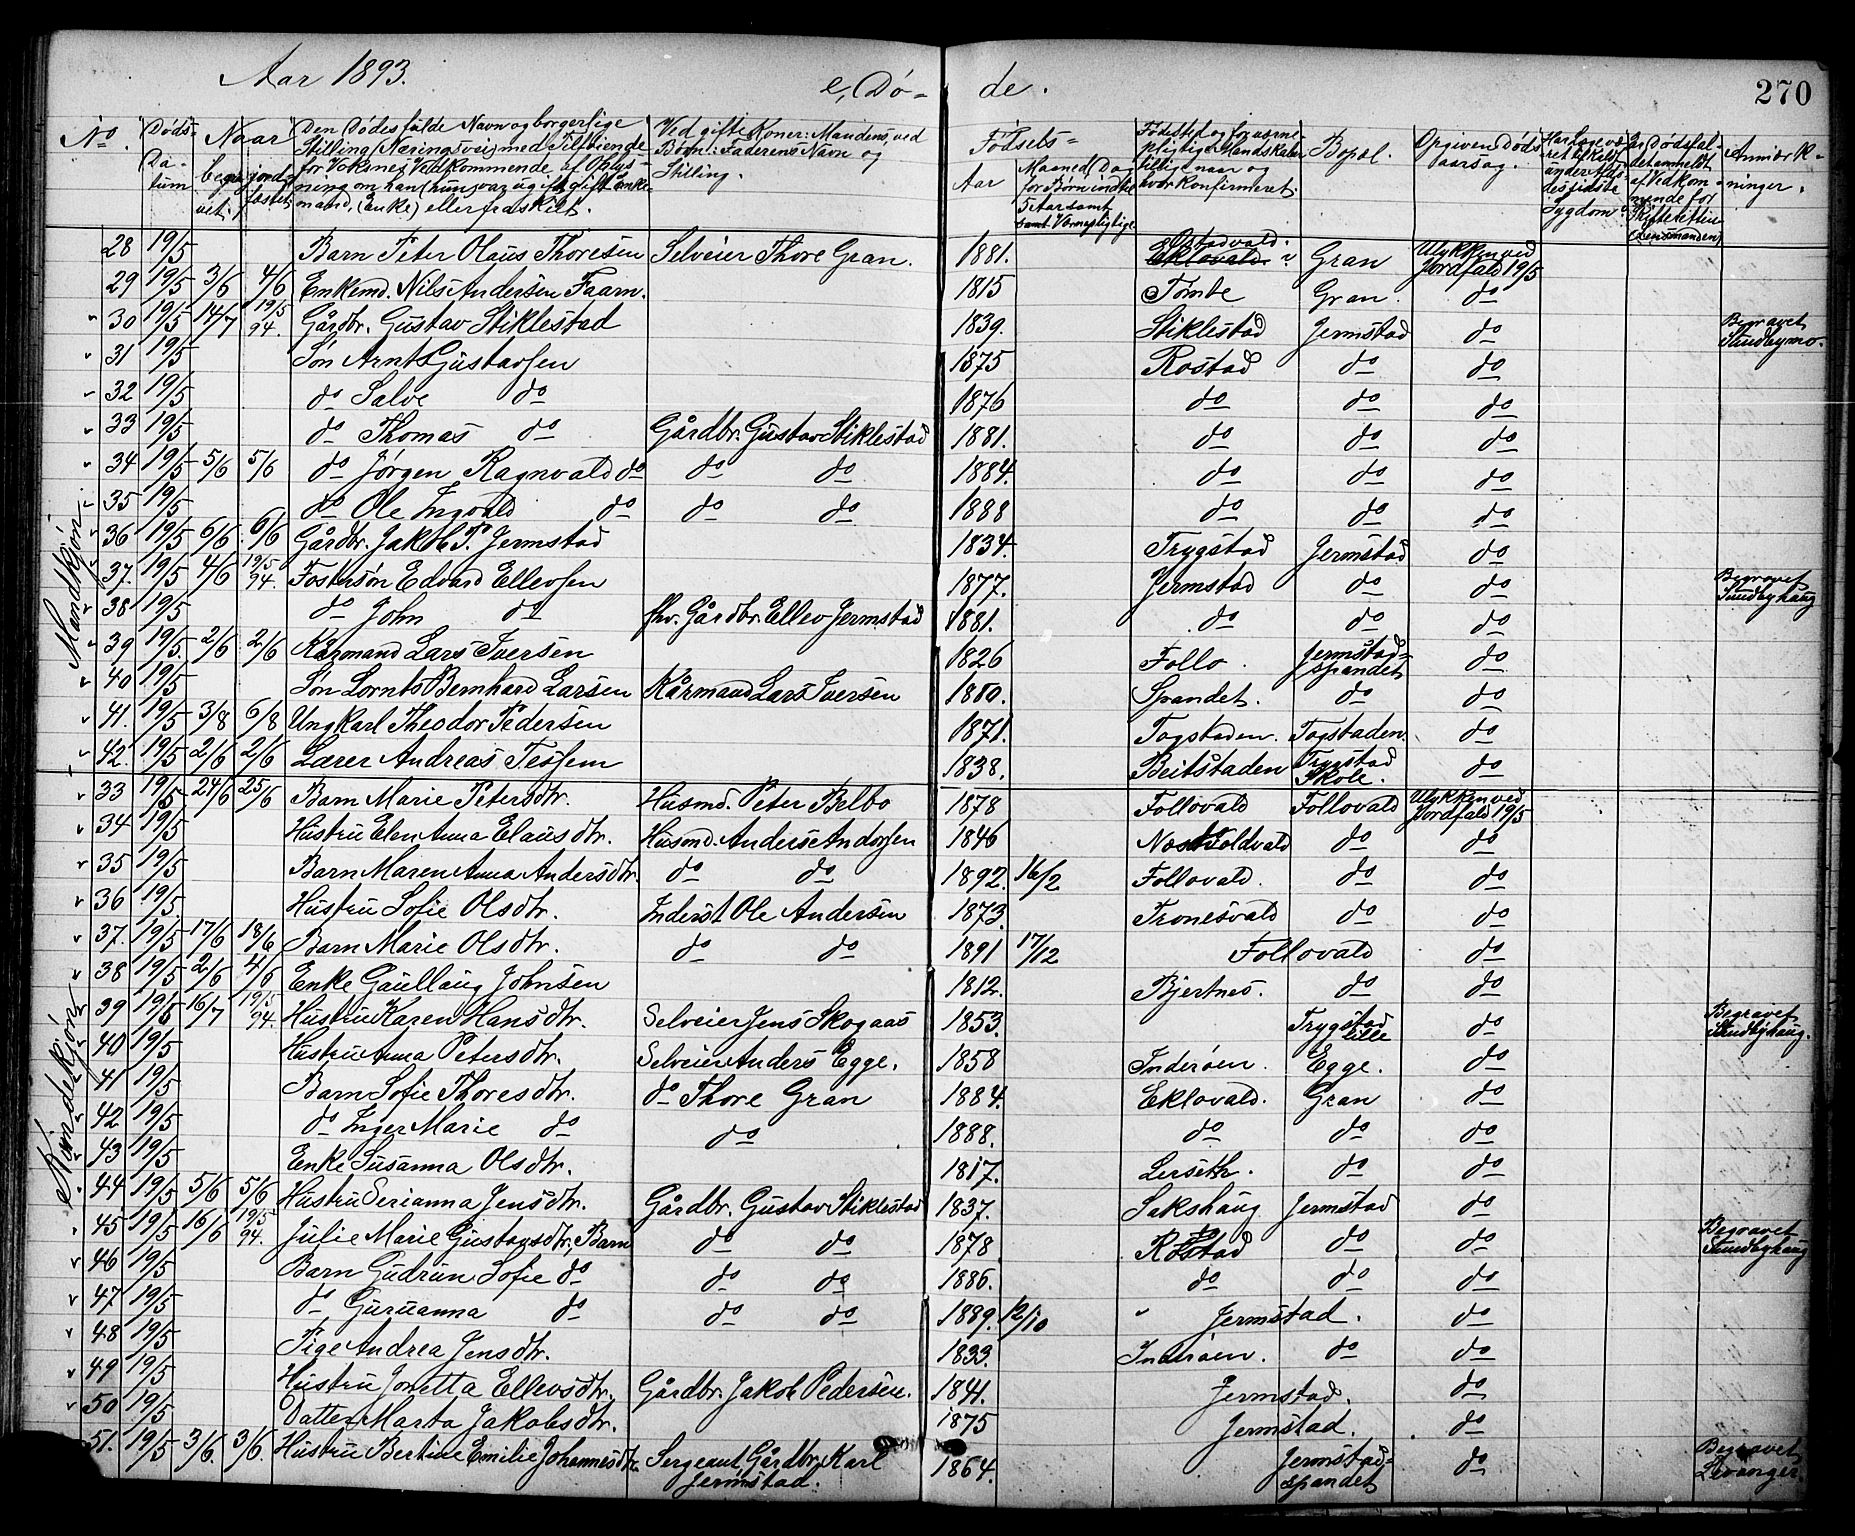 Aar 1893.
e, Dö-
de.
270
No.
Döds-
Da-
tum
Naar
begra-
vet.
jord-
fæstet
Den Dødes fulde Navn og borgerlige
Stilling (Næringsvei) med Tilføiende
for Voksne, Vedkommende af Oplys-
ning om han (hun) var ugift, gift, enke-
mand, (enke) eller fraskilt.
Ved gifte Koner: Mandens, ved
Børn: Faderens Navn og
Stilling.
Fødsels-
Aar
Maaned, Dag
for Børn indtil
samt Værnepligtige
Fødested og for værne-
pligtige Mandskaber
tillige naar og
hvor konfirmeret.
Bopæl.
Opgiven Døds-
aarsag.
Sygdom?
Er Dødsfal-
det anmeldt
af Vedkom-
mende for
Skifteretten
(Lensmanden)
Anmærk-
ninger.
Mandkjön.
28 19/5 Barn Peter Olaus Thoresen Selveier Thore Gran. 1881. Östadvald. Eklovald. Gran Ulykken ved Jordfald 19/5
29 19/5 3/6 4/6 Enkemd. Nils Andersen Faarn. 1815 Tømte Gran. do
30 19/5 14/7 19/5 94. Gårdbr. Gustav Stiklestad 1839. Stiklestad Jermstad do Begravet Sundbymo.
31 19/5 Søn Arnt Gustavsen 1875 Rostad do do
32 19/5 do Salve do 1876 do do do
33 19/5 do Thomas do Gårdbr. Gustav Stiklestad 1881. do do do
34 19/5 5/6 5/6 do Jørgen Ragnvald do do do 1884. do do do
35 19/5 do Ole Ingvald do do do 1888 do do do
36 19/5 6/6 6/6 Gårdbr. Jakob P. Jermstad 1834 Trygstad Jermstad do
37. 19/5 4/6 19/5 94. Fostersøn Edvard Ellevsen 1877. Jermstad do do Begravet Sundbyhaug
38 19/5 do John do fhv. Gårdbr. Ellev Jermstad 1881. do do do
39 19/5 2/6 2/6 Kårmand Lars Iversen 1826 Follo. Jermstad-spandet do
40 19/5 Søn Lornts Bernhard Larsen Kårmand Lars Iversen 1880. Spandet. do do
41. 19/5 3/8 6/8 Ungkarl Theodor Pedersen 1871. Togstaden. Togstaden. do
42. 19/5 2/6 2/6 Lærer Andreas Tessem 1838. Beitstaden Trygstad Skole. do
Kvindekjön
33 19/5 24/6 25/6 Barn Marie Petersdtr. Husmd. Peter Belbo 1878 Follovald Follovald Ulykken ved Jordfald 19/5
34 19/5 Hustru Elen Anna Elausdtr. Husmd. Anders Andersen 1846 Næstvoldvald do do
35 19/5 Barn Maren Anna Andersdtr. do do 1892. 16/2 Follovald. do do
36 19/5 Hustru Sofie Olsdtr. Inderst Ole Andersen 1873 Tronesvald do do
37. 19/5 17/6 18/6 Barn Marie Olsdtr. do do 1891 17/12 Follovald do
38 19/5 2/6 4/6 Enke Gaullaug Johnsen 1812. Bjertnes. do do
39 19/5 16/7 19/5 94. Hustru Karen Hansdtr. Selveier Jens Skogaas 1853. Trygstad lille do Begravet Sundbyhaug.
40 19/5 Hustru Anna Petersdtr. Selveier Anders Egge. 1858 Inderøen. Egge. do
41 19/5 Barn Sofie Thoresdtr. do Thore Gran 1884. Eklovald. Gran do
42 19/5 do Inger Marie do do 1888. do do do
43 19/5 Enke Susanna Olsdtr. 1817. Lerseth. do do
44 19/5 5/6 5/6 Hustru Serianna Jensdtr. Gårdbr. Gustav Stiklestad 1837. Sakshaug Jermstad do
45 19/5 16/6 19/5 94. Julie Marie Gustavsdtr., Barn do do 1878. Rostad do do Begravet Sundbyhaug
46 19/5 Barn Gudrun Sofie do do do 1886. do do do
47 19/5 do Guruanna do do do 1889. 12/10 " Jermstad. do
48 19/5 Pige Andrea Jensdtr. 1833. Inderøen. do do
49 19/5 Hustru Jonetta Ellevsdtr. Gårdbr. Jakob Pedersen. 1841. Jermstad. do
50 19/5 Datter Marta Jakobsdtr. 1875 Jermstad. do
51. 19/5 3/6. 3/6. Hustru Bertine Emilie Johannesdtr. Sergeant, Gårdbr. Karl Jermstad. 1864. Jermstad-spandet do Begravet Levanger